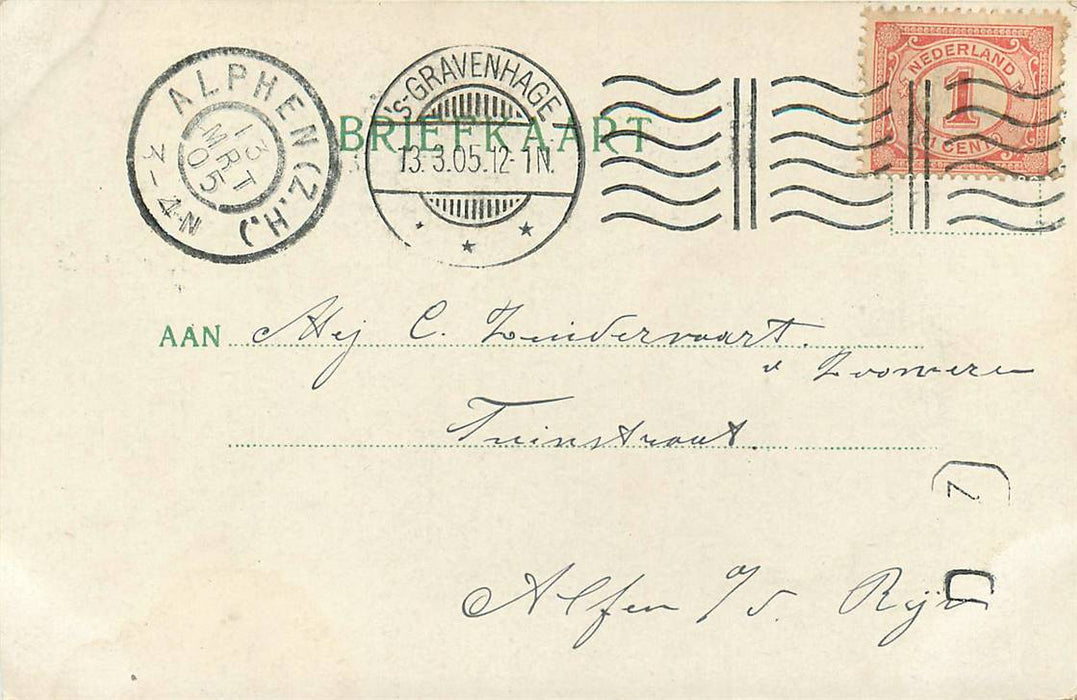 NEDERLAND
1
CENT
BRIEFKAART
ALPHEN (Z.H.)
13 MRT 05
3-4N
's-GRAVENHAGE
13.3.05.12-1N.
AAN Mej C. Zuidervaart.
Tuinstraat.
Z
Alfen a/d. Rijn
D